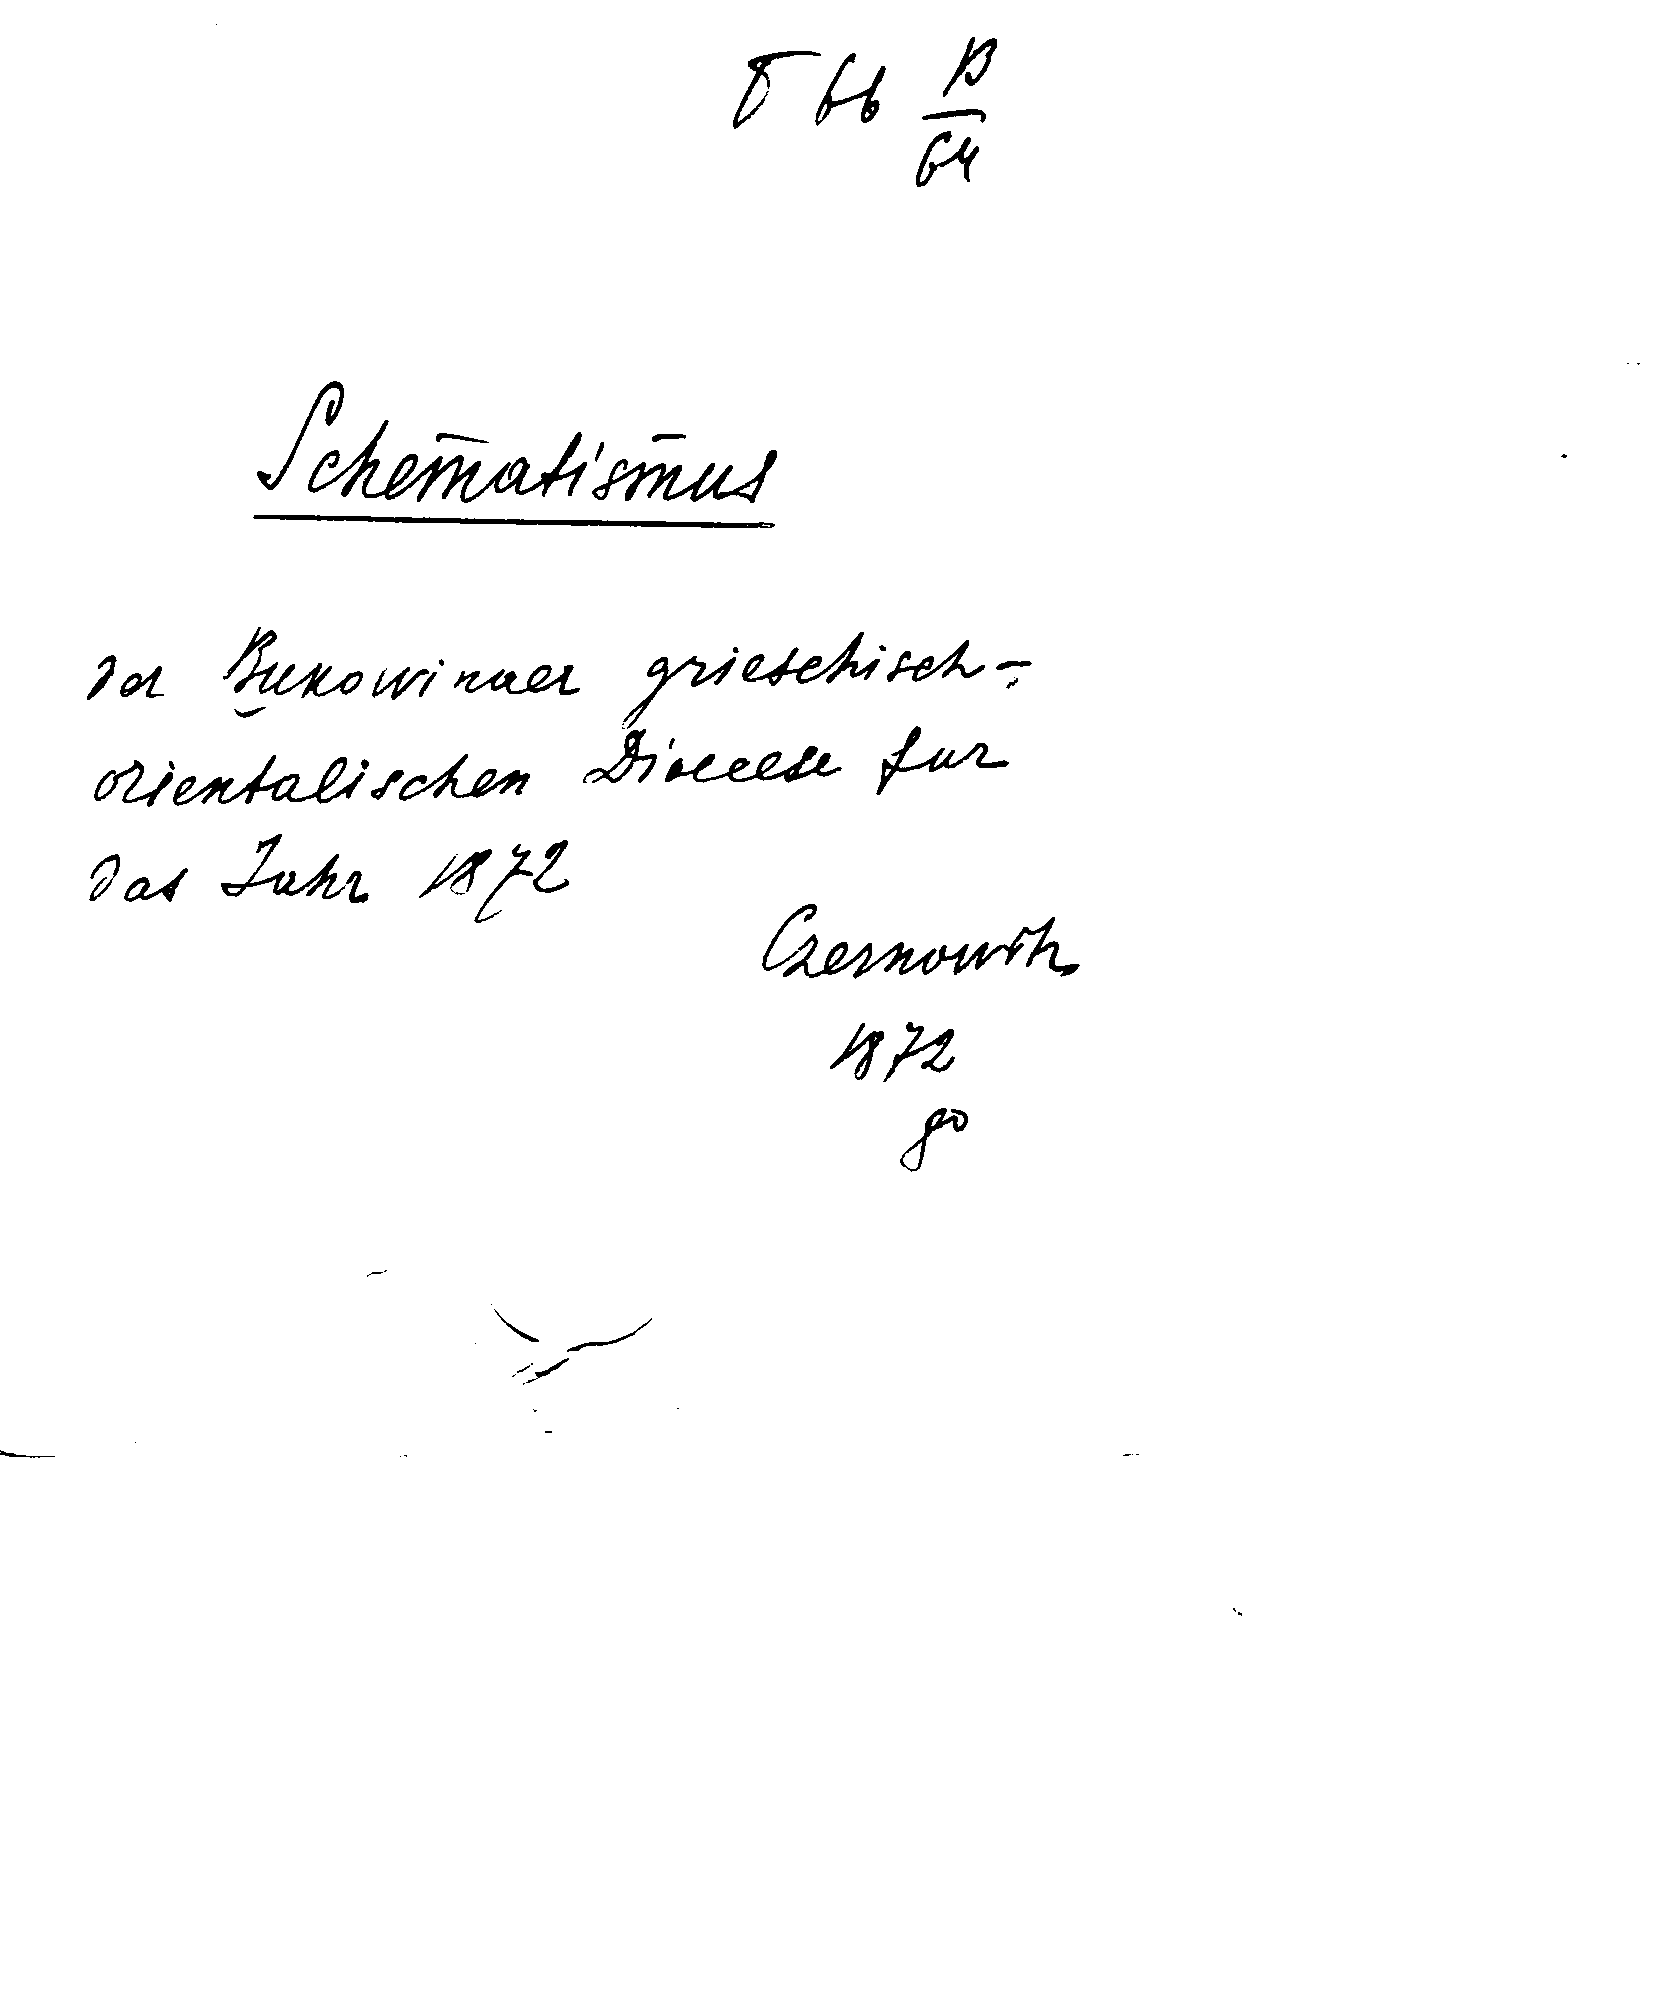 66 B
64
Schematismus
der Bukowinaer grieschisch-
orientalischen Dioecese fur
das Jahr 1872
Czernowitz
1872